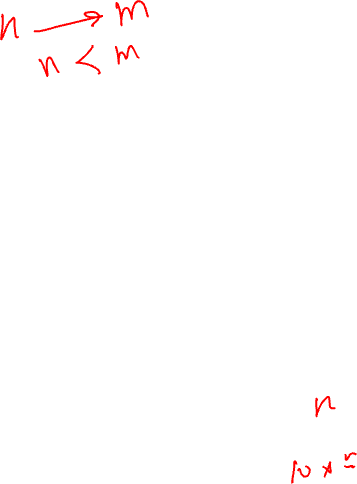 n → m
n < m
n
10 * n